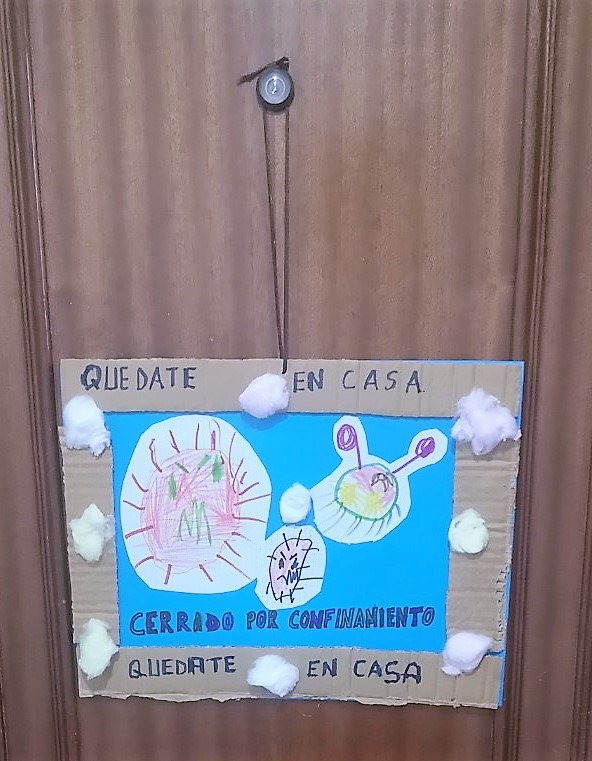 QUEDATE EN CASA
CERRADO POR CONFINAMIENTO
QUEDATE EN CASA